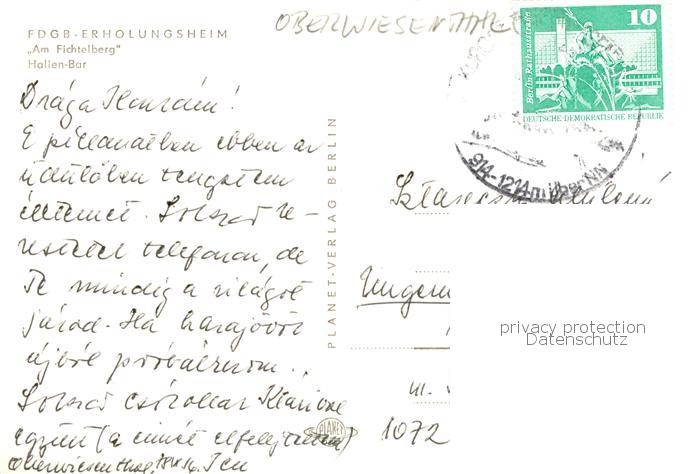 OBERWIESENTHAL
FDGB-ERHOLUNGSHEIM
„Am Fichtelberg“
Hallen-Bar
10
Berlin · Rathausstraße
DEUTSCHE DEMOKRATISCHE REPUBLIK
914-1214 m über NN
Drága Ilonkám!
E pillanatban ebben az
üdülőben tengetem
életemet. Sokszor ke-
restelek telefonon, de
Te mindig a világot
járod. Ha hazajövök
újból próbálkozom.
Sokszor csókollak Klárival
együtt (a címét elfelejtettem)
Oberwiesenthal,
PLANET-VERLAG BERLIN
PLANET
Ungarn
1072
privacy protection
Datenschutz